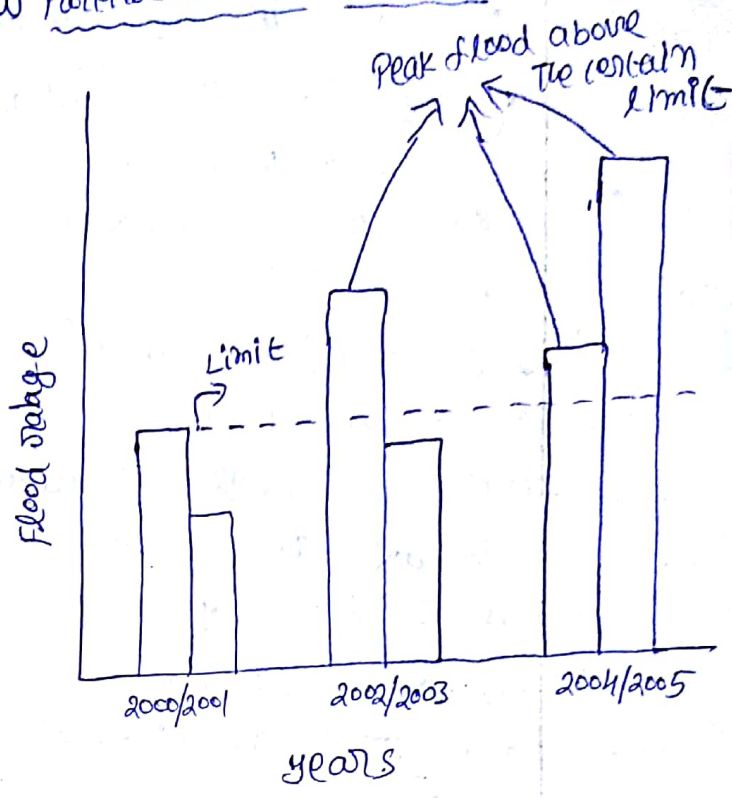 Peak flood above
The certain
limit
Limit
Flood
2000/2001
2002/2003
2004/2005
years